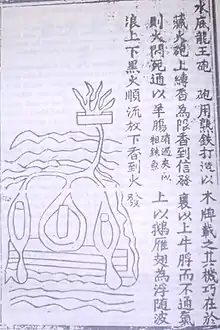 水底龍王砲 砲用熟鐵打造以木牌載之其機巧在於
藏火砲上縛香為限香到信發裹以上牛脬而不通氣
則火悶死通以羊腸 上以鵝雁翅為浮隨波
浪上下黑火順流放下香到火發